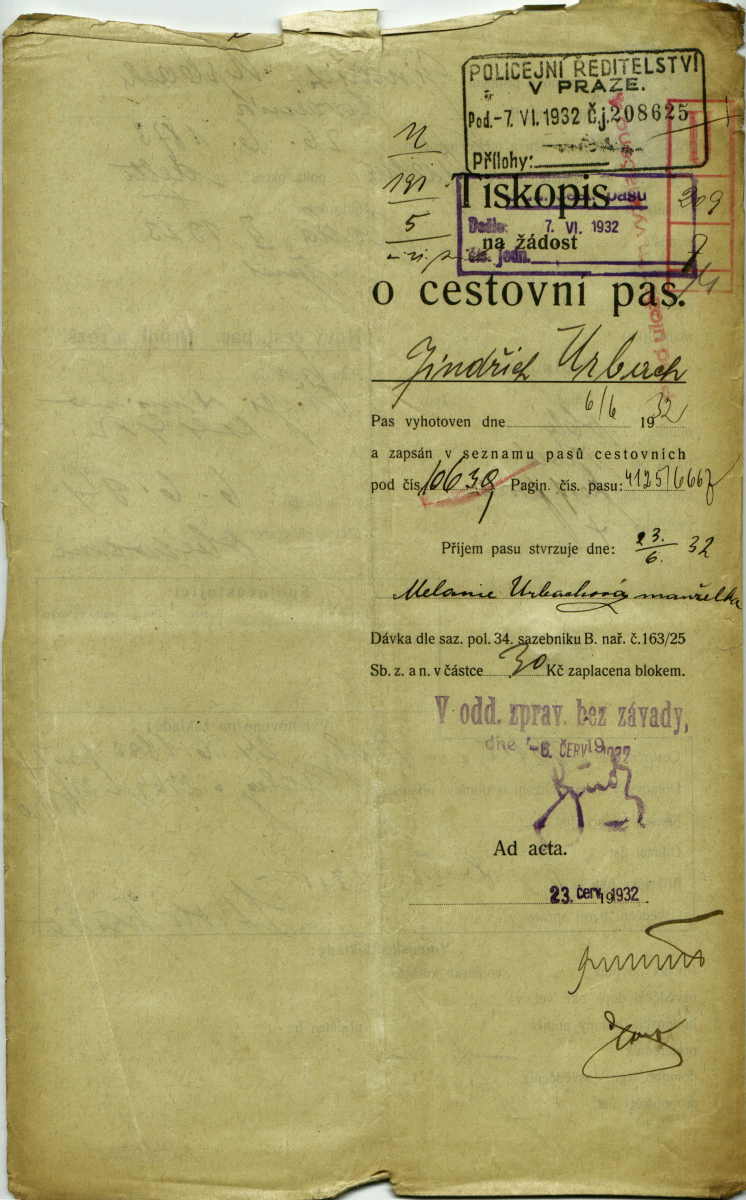 POLICEJNÍ ŘEDITELSTVÍ
V PRAZE.
Pod. -7. VI. 1932 Č.j. 208625
Přílohy:
191
5
Tiskopis
209
Došlo: 7. VI. 1932
na žádost
čís. jedn.
o cestovní pas.
Jindřich Urbach
Pas vyhotoven dne 6/6 1932
a zapsán v seznamu pasů cestovních
pod čís. 10639 Pagin. čís. pasu: 4125/6667
Příjem pasu stvrzuje dne: 23. 6. 32
Melanie Urbachová manželka
Dávka dle saz. pol. 34. sazebníku B. nař. č. 163/25
Sb. z. a n. v částce 30 Kč zaplacena blokem.
V odd. zprav. bez závady,
dne -6. ČERV. 1932
Ad acta.
23. červ. 1932